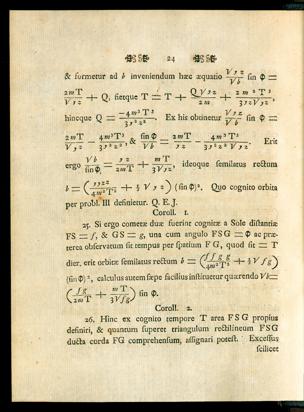 24
& formetur ad b inveniendum hæc æquatio V y z / V b sin Φ =
2 m T / V y z + Q, fietque T = T + Q V y z / 2 m + 2 m² T³ / 3 y z V y z,
hincque Q = − 4 m³ T³ / 3 y² z². Ex his obtinetur V y z / V b sin Φ =
2 m T / V y z − 4 m³ T³ / 3 y² z² V y z, & sin Φ / V b = 2 m T / y z − 4 m³ T³ / 3 y² z² V y z. Erit
ergo V b / sin Φ = y z / 2 m T + m T / 3 V y z, ideoque semilatus rectum
b = ( y y z z / 4 m² T² + ⅓ V y z ) (sin Φ)². Quo cognito orbita
per probl. III definietur. Q. E. J.
Coroll. 1.
25. Si ergo cometæ duæ fuerint cognitæ a Sole distantiæ
FS = f, & GS = g, una cum angulo FSG = Φ ac præ-
terea observatum sit tempus per spatium FG, quod sit = T
dier. erit orbitæ semilatus rectum b = ( f f g g / 4 m² T² + ⅓ V f g )
(sin Φ)², calculus autem sæpe facilius instituetur quærendo V b =
( f g / 2 m T + m T / 3 V f g ) sin Φ.
Coroll. 2.
26. Hinc ex cognito tempore T area FSG propius
definiri, & quantum superet triangulum rectilineum FSG
ducta corda FG comprehensum, assignari potest. Excessus
scilicet